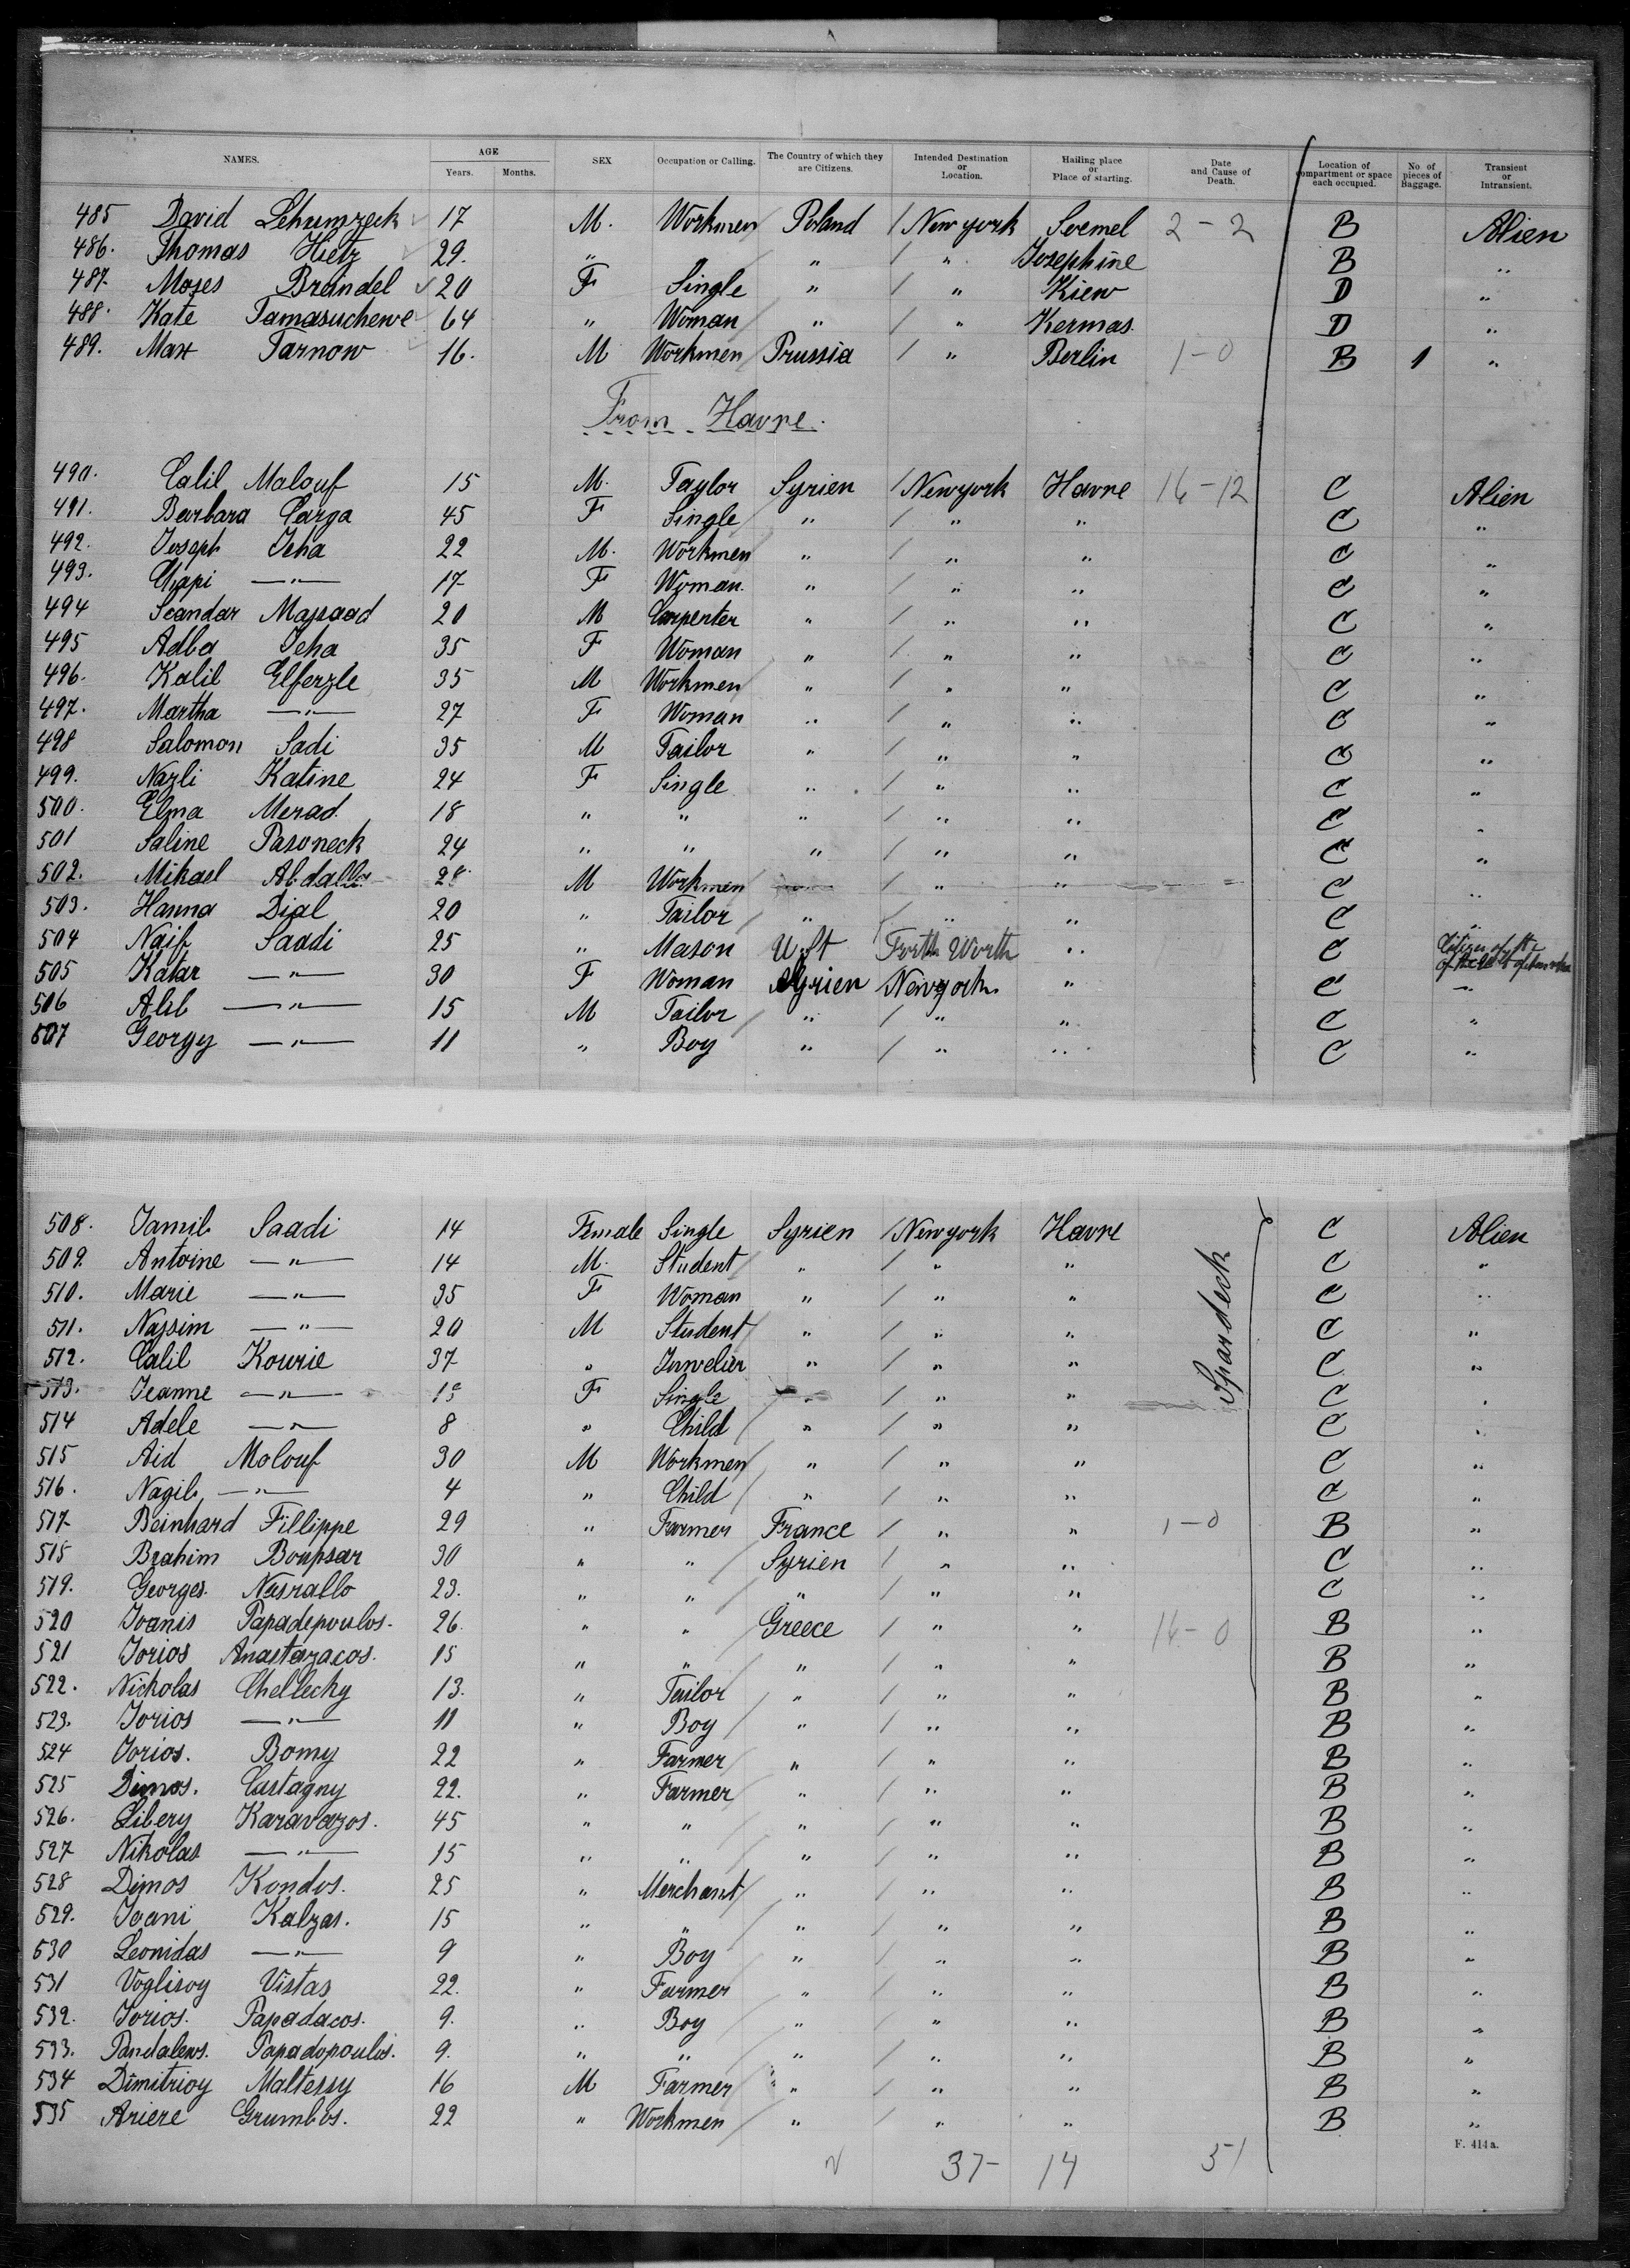 NAMES. AGE Years. Months. SEX Occupation or Calling. The Country of which they are Citizens. Intended Destination or Location. Hailing place or Place of starting. Date and Cause of Death. Location of compartment or space each occupied. No. of pieces of Baggage. Transient or Intransient.
485 David Schumzeck 17 M. Workmen Poland / New york Soemel 2-2 B Alien
486. Thomas Hietz 29. " " / " Josephine B "
487. Moses Breindel 20 F Single " / " Kiew D "
488. Kate Tamasuchewe 64 " Woman " / " Kermas D "
489. Max Tarnow 16. M Workmen Prussia / " Berlin 1-0 B 1 "
From Havre.
490. Calil Malouf 15 M. Taylor Syrien / Newyork Havre 16-12 C Alien
491. Barbara Carga 45 F Single " / " " C "
492. Joseph Jeha 22 M. Workmen " / " " C "
493. Chapi —"— 17 F Woman " / " " C "
494 Scandar Massaad 20 M Carpenter " / " " C "
495 Adba Jeha 35 F Woman " / " " C "
496. Kalil Elferzle 35 M Workmen " / " " C "
497. Martha —"— 27 F Woman " / " " C "
498 Salomon Sadi 35 M Tailor " / " " C "
499. Nazli Katine 24 F Single " / " " C "
500. Elma Merad 18 " " " / " " C "
501 Saline Pasoneck 24 " " " / " " C "
502. Mikael Abdalla 28 M Workmen " / " " C "
503. Hanna Dial 20 " Tailor " / " " C "
504 Naif Saadi 25 " Mason U. St Forth Worth " C Citizen of
505 Katar —"— 30 F Woman Syrien Newyork " C "
506 Alib —"— 15 M Tailor " / " " C "
507 Georgy —"— 11 " Boy " / " " C "
508. Jamil Saadi 14 Female Single Syrien / Newyork Havre C Alien
509 Antoine —"— 14 M. Student " / " " C "
510. Marie —"— 35 F Woman " / " " C "
511. Nassim —"— 20 M Student " / " " C "
512. Calil Kourie 37 " Juwelier " / " " C "
513. Jeanne —"— F Single " / " " C "
514 Adele —"— 8 " Child " / " " C "
515 Aid Molouf 30 M Workmen " / " " C "
516. Nagib —"— 4 " Child " / " " C "
517 Beinhard Fillippe 29 " Farmer France / " " 1-0 B "
518 Brahim Boupsar 30 " " Syrien / " " C "
519. Georges Nasrallo 23. " " " / " " C "
520 Joanis Papadepoulos. 26. " " Greece / " " 14-0 B "
521 Jorios Anastazacos. 15 " " " / " " B "
522. Nicholas Chellechy 13. " Tailor " / " " B "
523. Jorios —"— 11 " Boy " / " " B "
524 Jorios. Bomy 22 " Farmer " / " " B "
525 Dimos. Castagny 22. " Farmer " / " " B "
526. Libery Karavazos. 45 " " " / " " B "
527 Nikolas —"— 15 " " " / " " B "
528 Dimos Kondos. 25 " Merchant " / " " B "
529. Joani Kalzas. 15 " " " / " " B "
530 Leonidas —"— 9 " Boy " / " " B "
531 Voglisoy Vistas 22. " Farmer " / " " B "
532. Jorios. Papadacos. 9. " Boy " / " " B "
533. Pandalews. Papadopoulos. 9. " " " / " " B "
534 Dimitrioy Maltessy 16 M Farmer " / " " B "
535 Ariere Grumbos. 22 " Workmen " " " B "
Spardeck
37- 14 51
F. 414a.